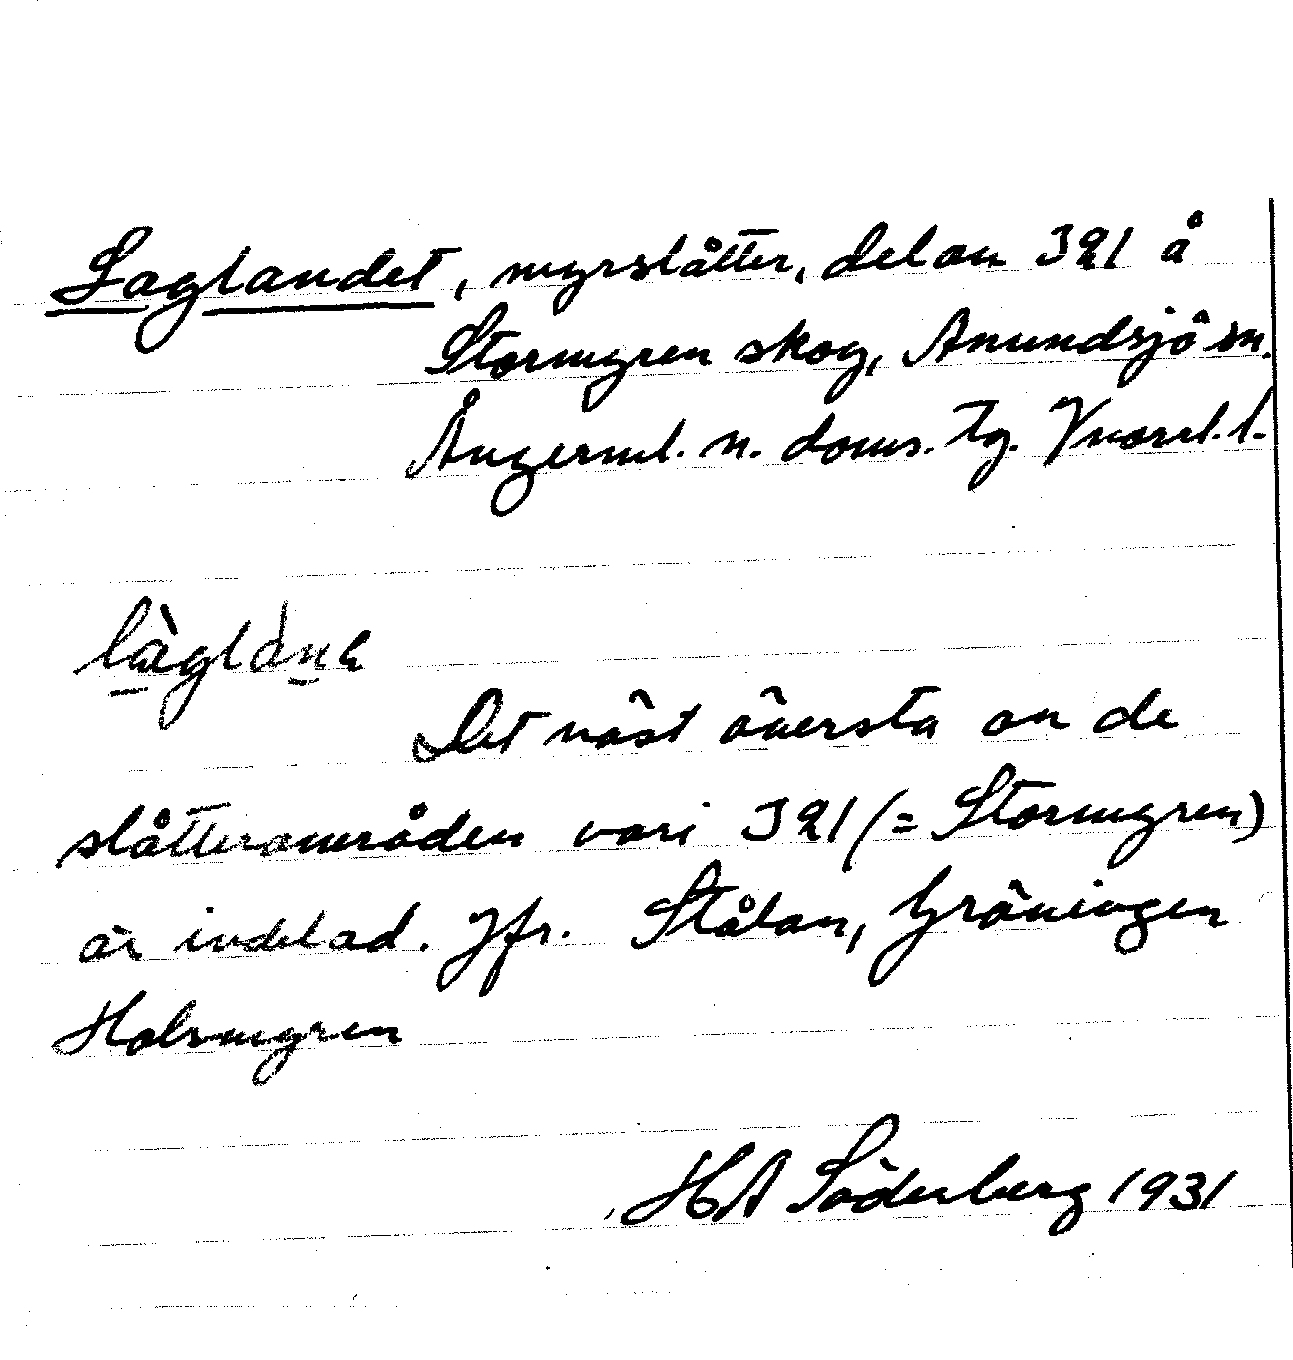 Laglandet, myrslåtter, del av 321 å
Stormyren skog, Anundsjö sn.
Ångerml. n. doms. tg. Vnorrl. l.
Det näst översta av de
slåtterområden vari 321 (= Stormyren)
är indelad. Jfr. Stålan, Gröningen
Holmyren
HA Söderberg 1931